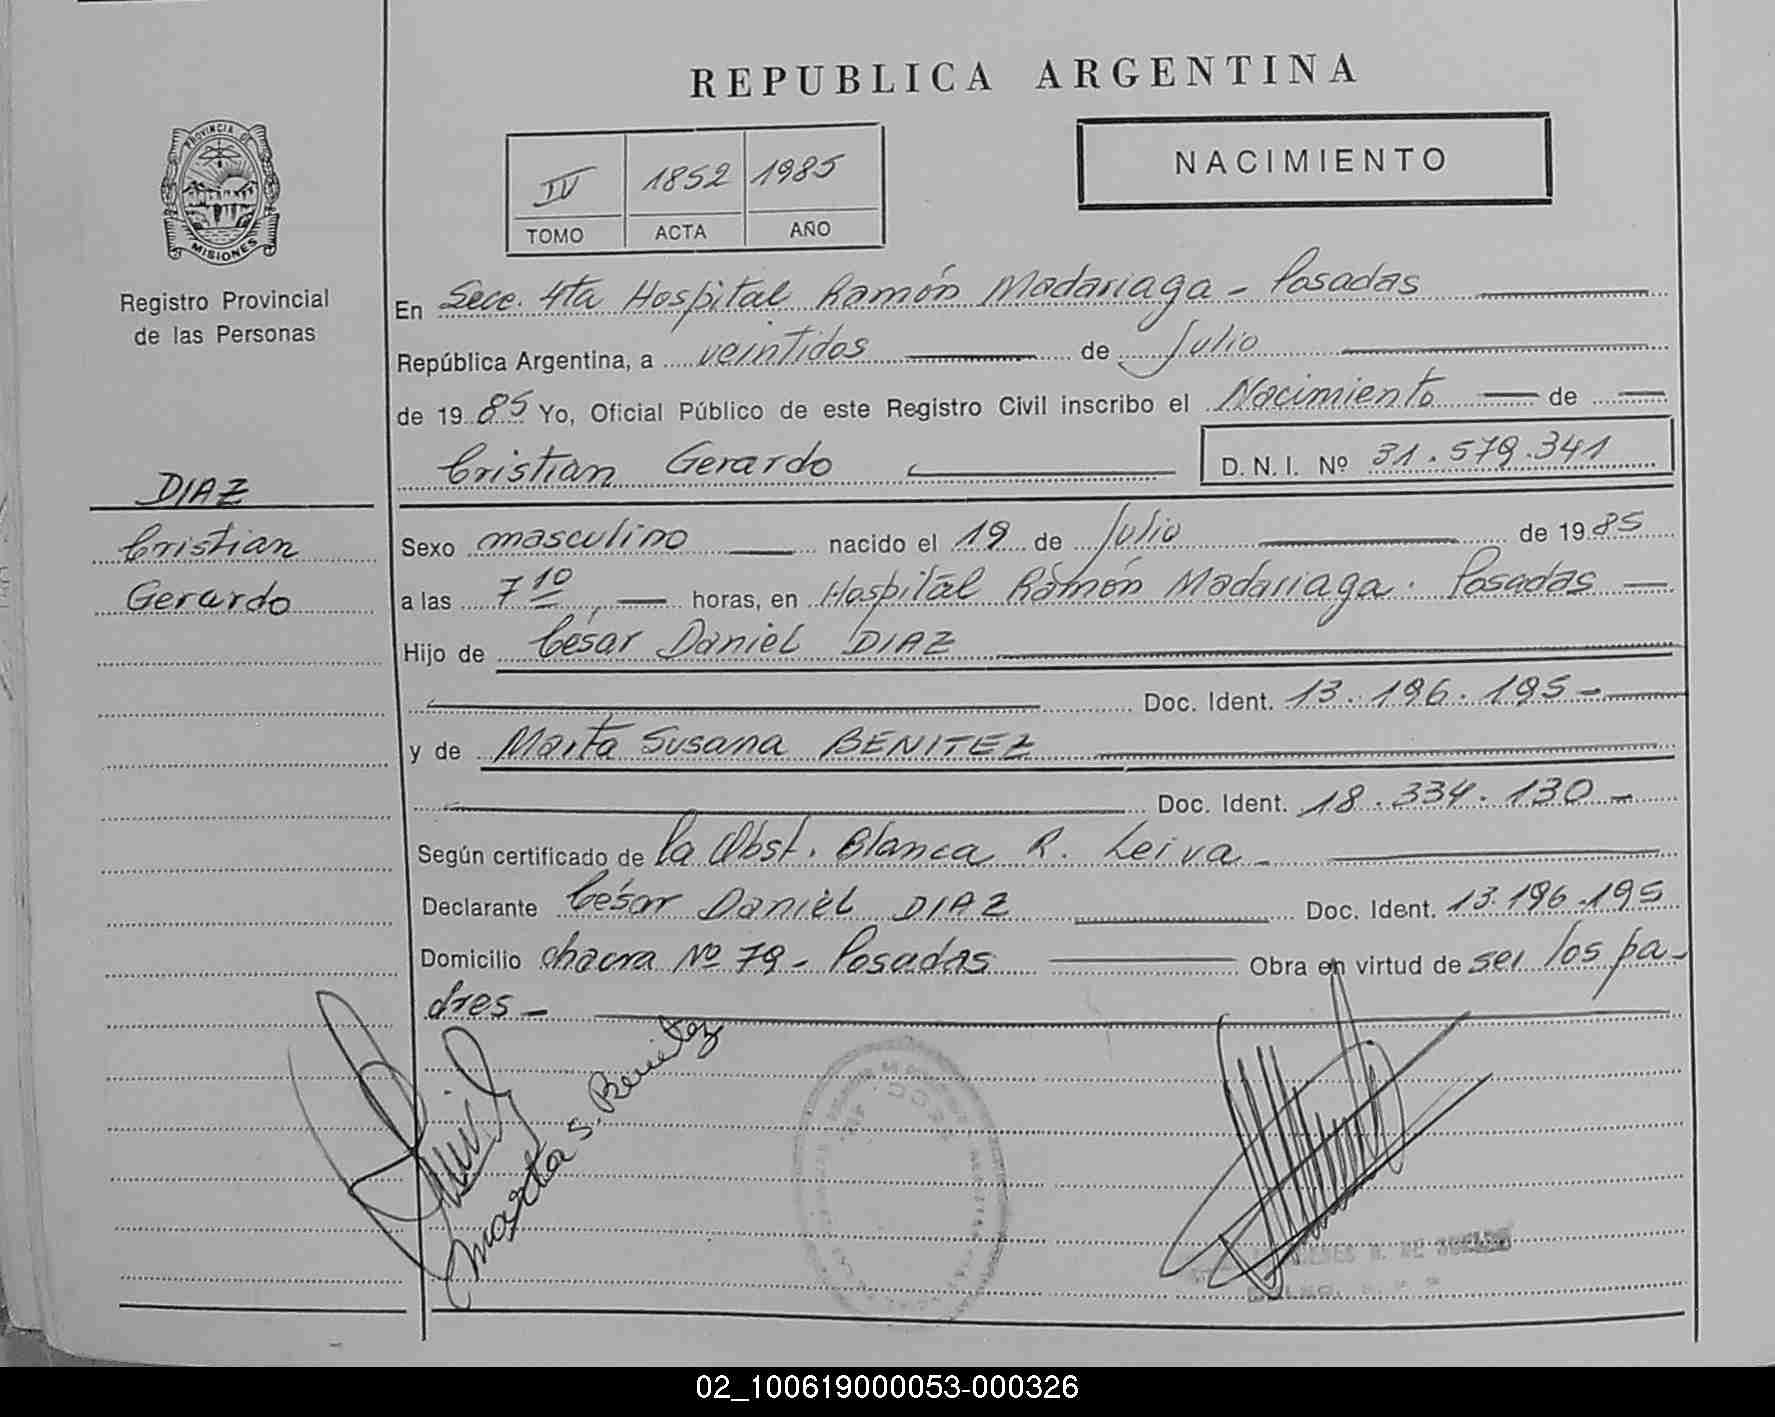 REPUBLICA ARGENTINA
PROVINCIA DE
MISIONES
Registro Provincial
de las Personas
IV 1852 1985
TOMO ACTA AÑO
NACIMIENTO
En Secc. 4ta Hospital Ramón Madariaga - Posadas
República Argentina, a veintidos de Julio
de 1985 Yo, Oficial Público de este Registro Civil inscribo el Nacimiento de
Cristian Gerardo D. N. I. Nº 31.579.341
DIAZ
Cristian
Gerardo
Sexo masculino nacido el 19 de Julio de 1985
a las 7 10 horas, en Hospital Ramón Madariaga. Posadas
Hijo de César Daniel DIAZ
Doc. Ident. 13.196.195-
y de Marta Susana BENITEZ
Doc. Ident. 18.334.130-
Según certificado de la Obst. Blanca R. Leiva-
Declarante César Daniel DIAZ Doc. Ident. 13.196.195
Domicilio chacra Nº 79- Posadas Obra en virtud de ser los pa-
dres-
Marta S. Benitez
02_100619000053-000326